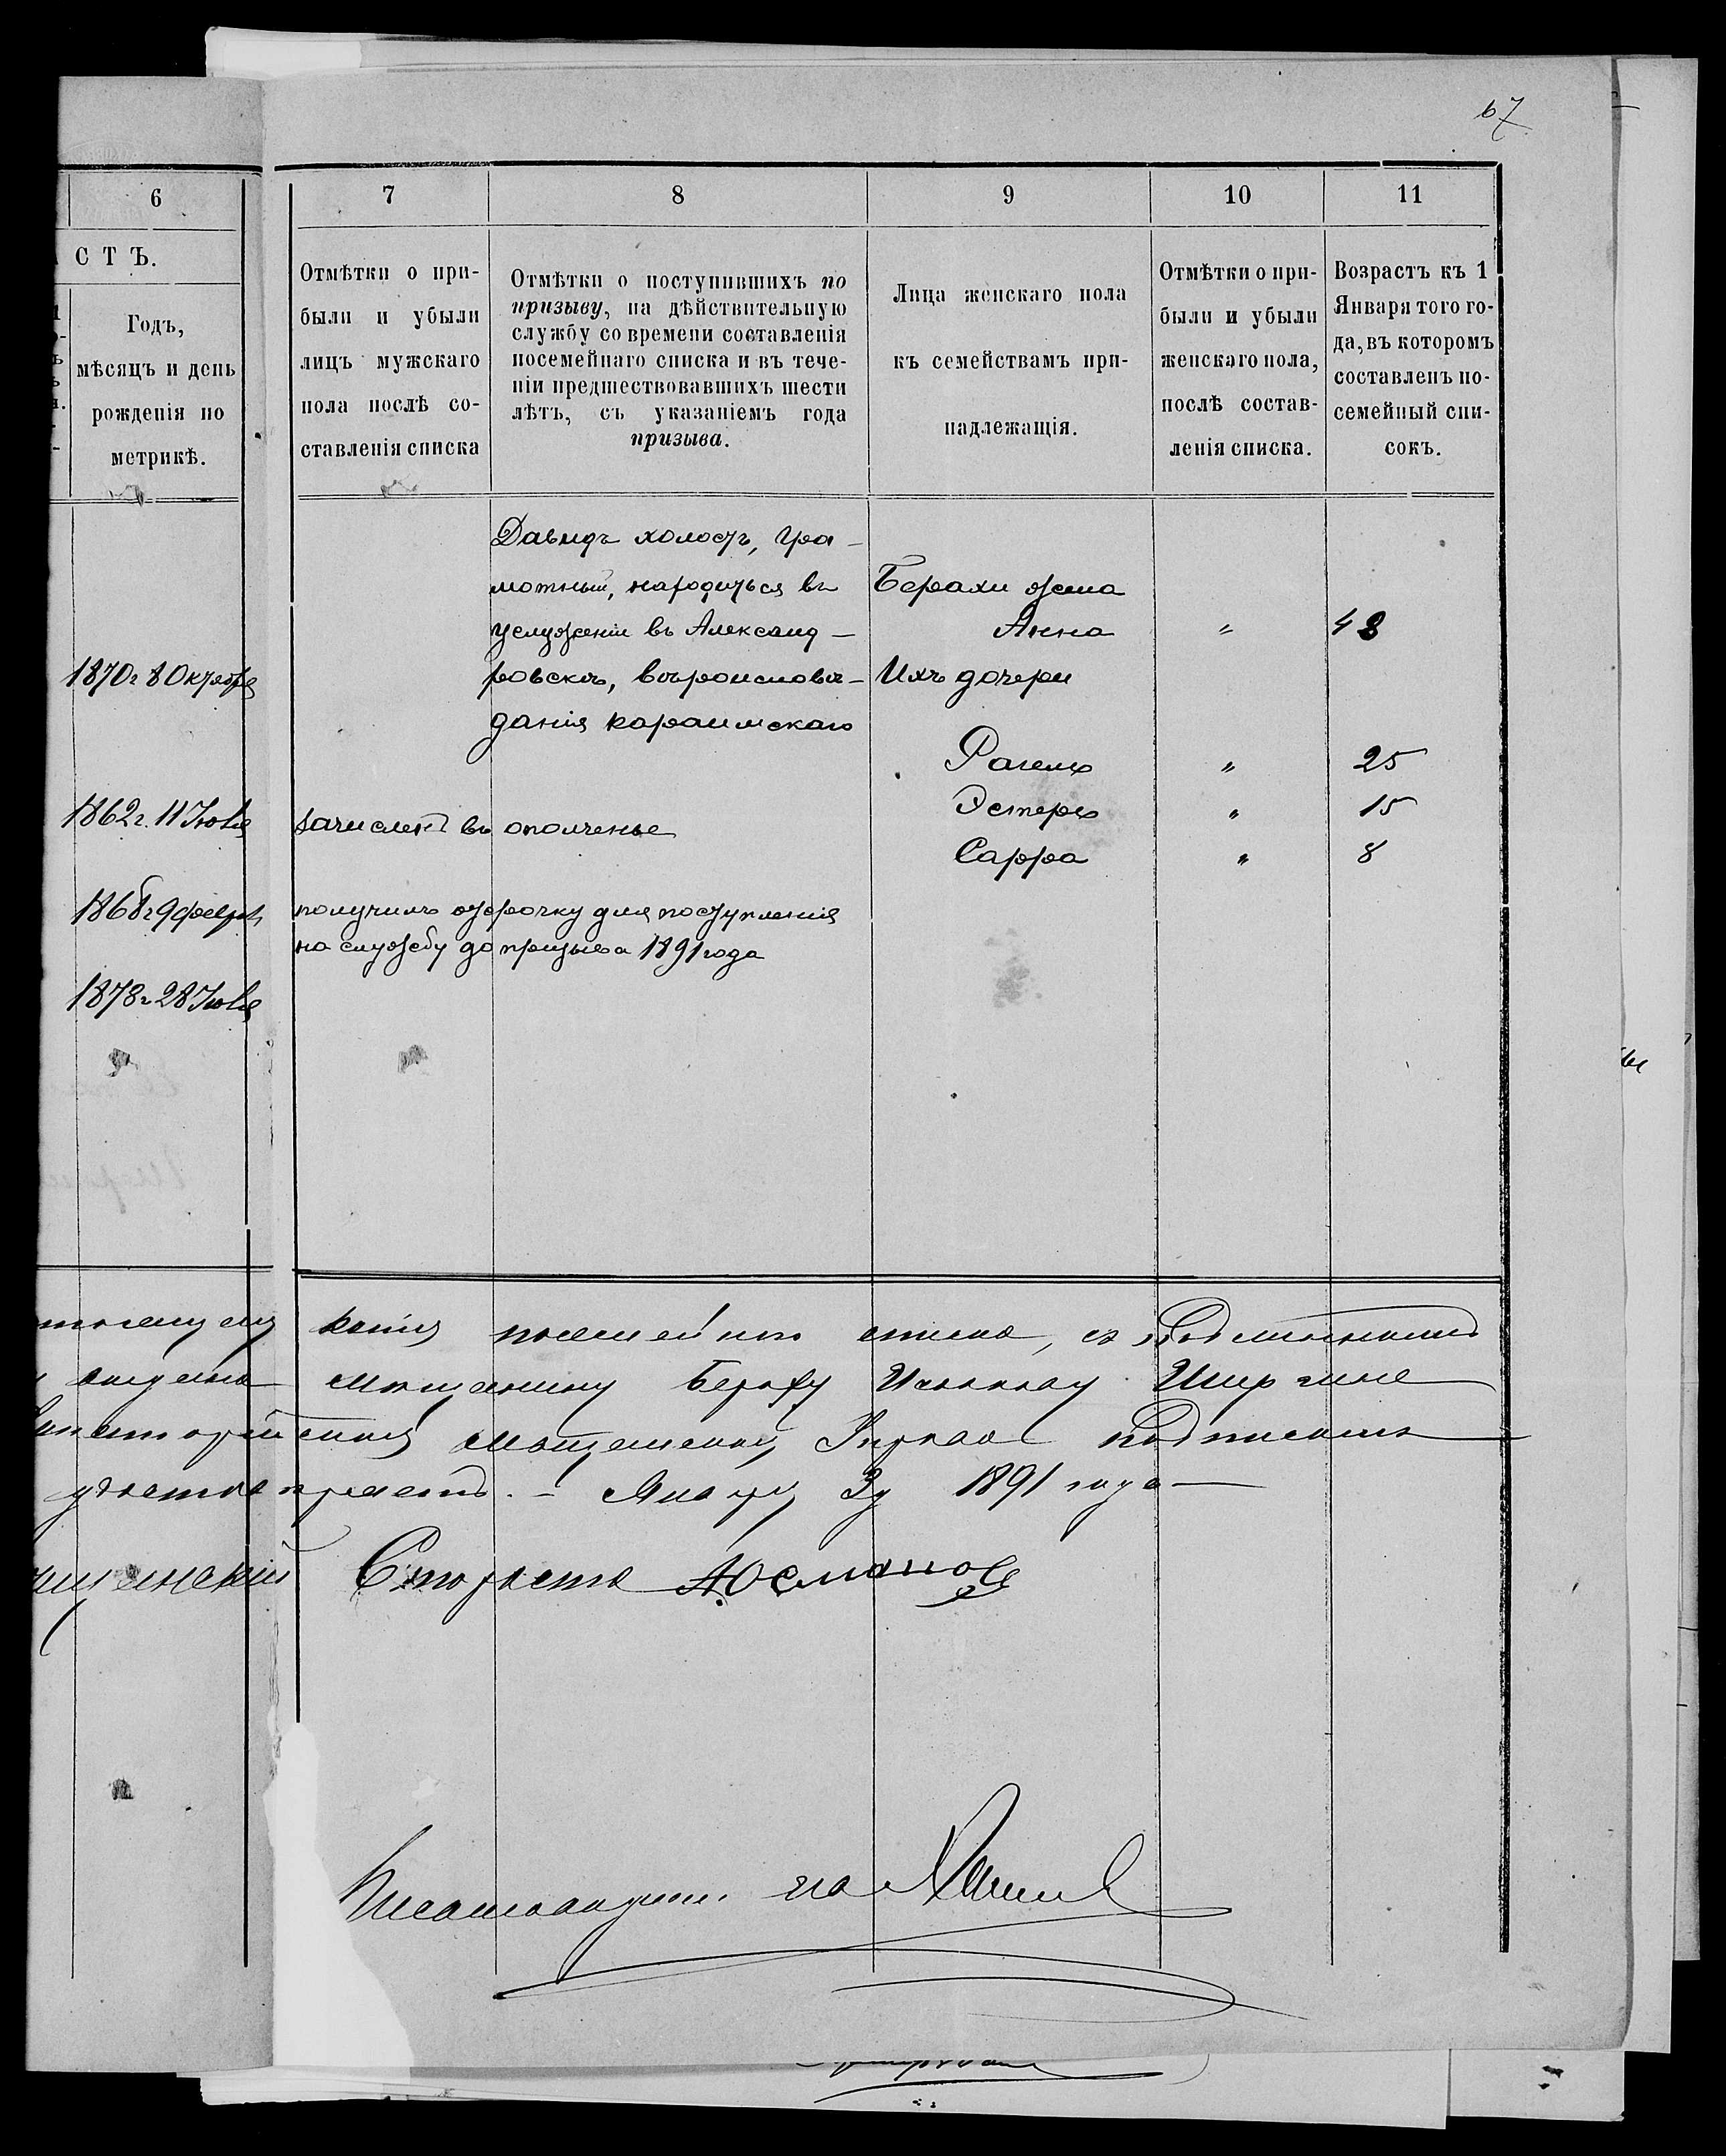 67
6
7
8
9
10
11
С Т Ъ.
Годъ,
мѣсяцъ и день
рожденія по
метрикѣ.
Отмѣтки о при-
были и убыли
лицъ мужскаго
пола послѣ со-
ставленія списка
Отмѣтки о поступившихъ по
призыву, на дѣйствительную
службу со времени составленія
посемейнаго списка и въ тече-
ніи предшествовавшихъ шести
лѣтъ, съ указаніемъ года
призыва.
Лица женскаго пола
къ семействамъ при-
надлежащія.
Отмѣтки о при-
были и убыли
женскаго пола,
послѣ состав-
ленія списка.
Возрастъ къ 1
Января того го-
да, въ которомъ
составленъ по-
семейный спи-
сокъ.
Давидъ холостъ, гра-
мотный, находиться въ
услуженіи въ Александ-
ровскѣ, вѣроисповѣ-
данія караимскаго
Берахи жена
Анна " 48
Ихъ дочери
Рахель " 25
Эстерь " 15
Сарра " 8
1870г 8 Октября
1862г. 11 Іюля
зачисленъ въ ополченье
1868г 9 февраля
получилъ отсрочку для поступленія
на службу до призыва 1891 года
1878г 28 Іюля
копія посемейнаго списка, съ подлиннымъ
мѣщанину
мѣщанская Управа
Января 3д 1891 года
Староста